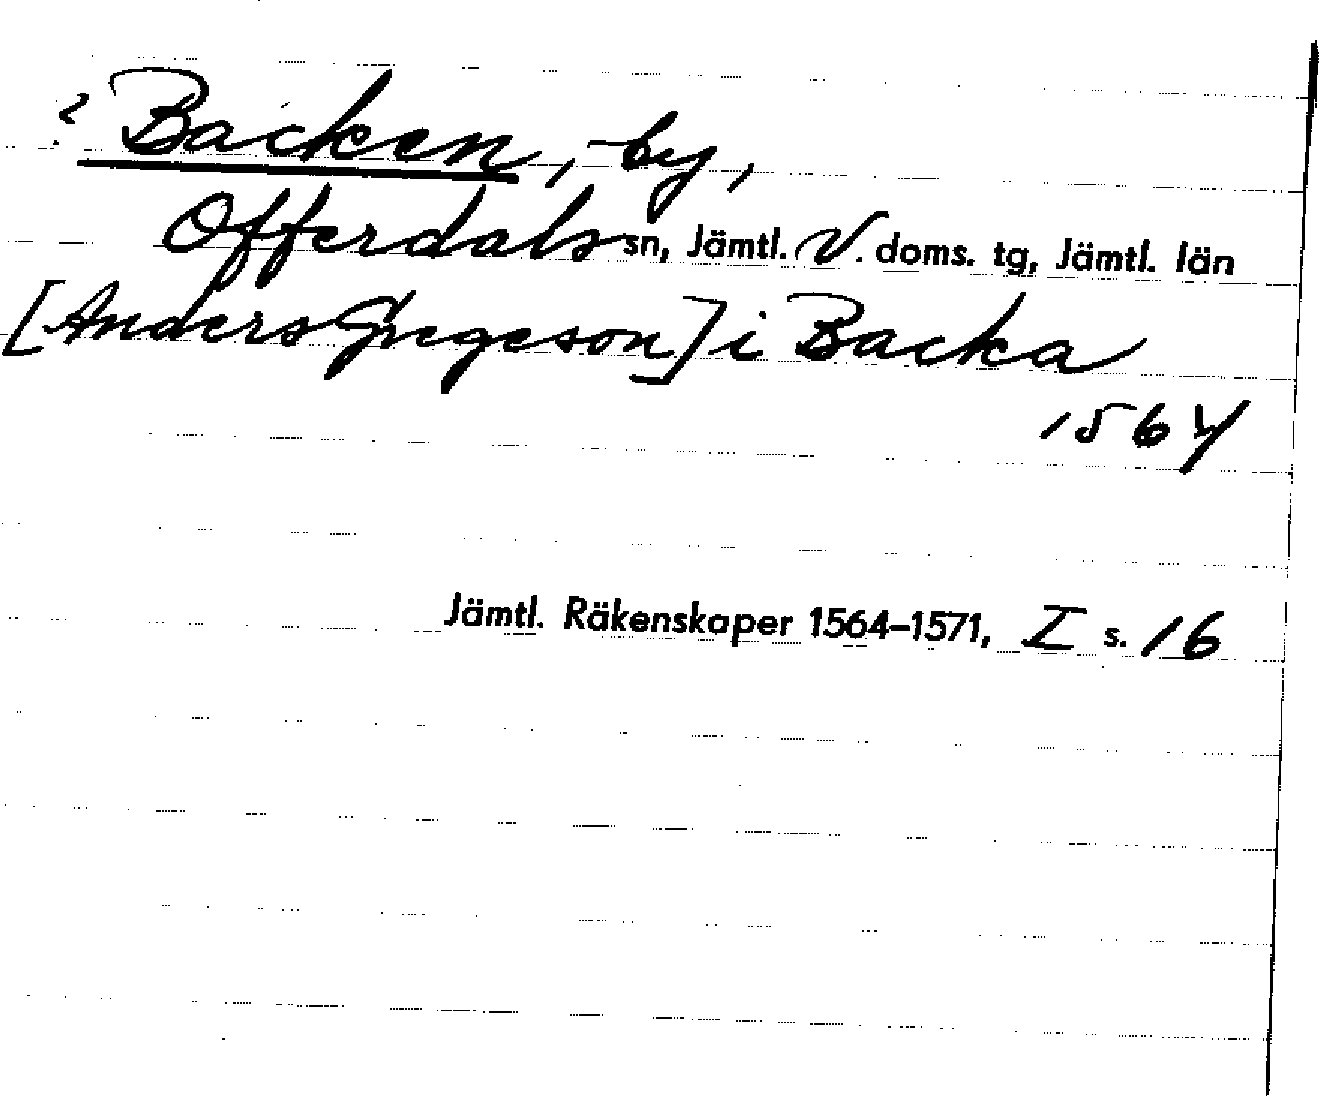 ? Backen, by,
Offerdals sn, Jämtl. V. doms. tg, Jämtl. län
[Anders Gregeson] i Backa
1564
Jämtl. Räkenskaper 1564–1571, I s. 16